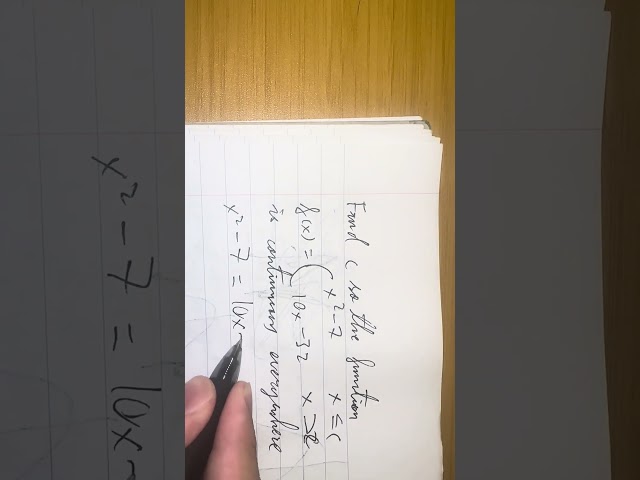 Find c so the function
f(x) = { x² - 7    x ≤ c
10x - 32    x > c
is continuous everywhere
x² - 7 = 10x -